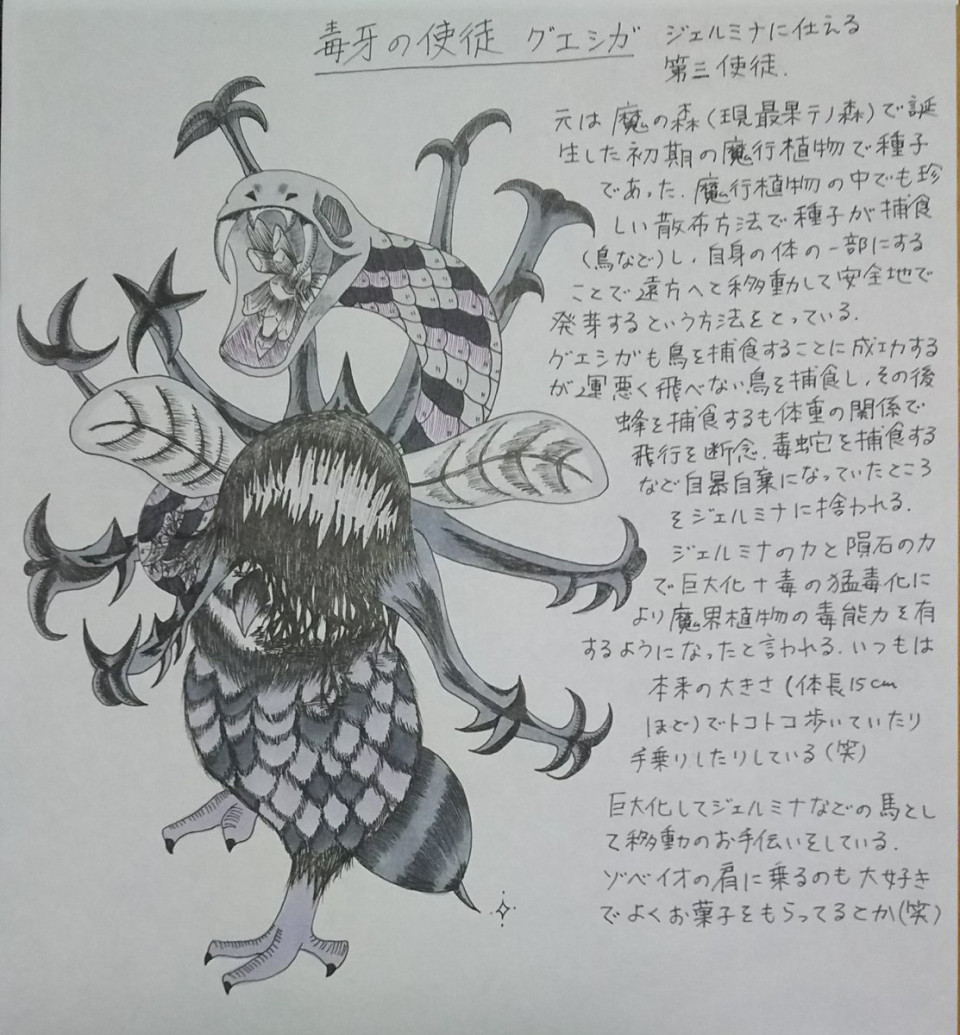 毒牙の使徒 グエシガ
ジェルミナに仕える
第三使徒.
元は魔の森(現最果テノ森)で誕
生した初期の魔行植物で種子
であった.魔行植物の中でも珍
しい散布方法で種子が捕食
(鳥など)し,自身の体の一部にする
ことで遠方へと移動して安全地で
発芽するという方法をとっている.
グエシガも鳥を捕食することに成功する
が運悪く飛べない鳥を捕食し,その後
蜂を捕食するも体重の関係で
飛行を断念.毒蛇を捕食する
など自暴自棄になっていたところ
をジェルミナに捨われる.
ジェルミナの力と隕石の力
で巨大化+毒の猛毒化に
より魔界植物の毒能力を有
するようになったと言われる.いつもは
本来の大きさ(体長15cm
ほど)でトコトコ歩いていたり
手乗りしたりしている(笑)
巨大化してジェルミナなどの馬とし
て移動のお手伝いをしている.
ゾベイオの肩に乗るのも大好き
でよくお菓子をもらってるとか(笑)